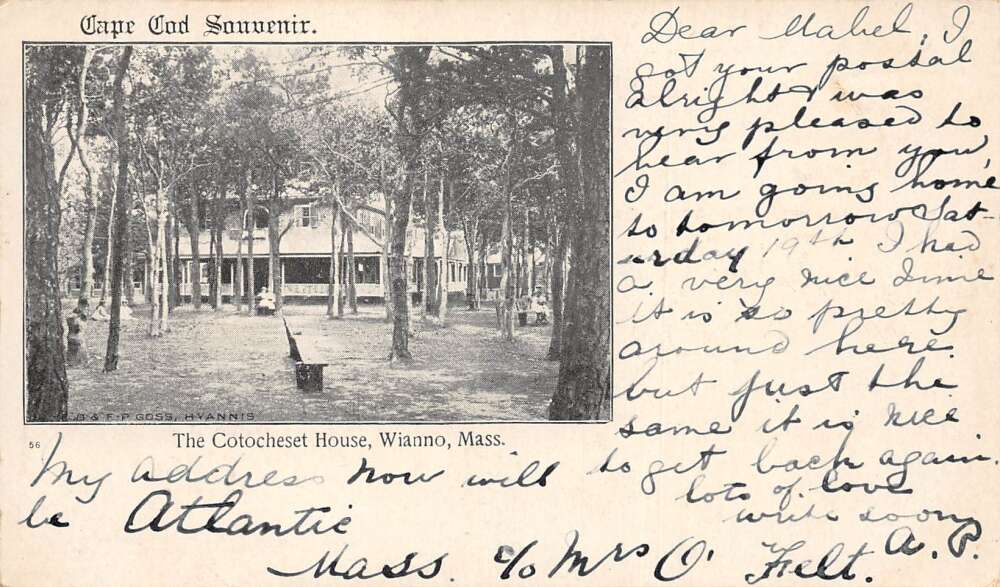 Cape Cod Souvenir.
Dear Mabel, I
got your postal
alright & was
very pleased to
hear from you,
I am going home
to tomorrow Sat-
urday 19th I had
a very nice time
It is so pretty
around here.
but just the
same it is nice
to get back again.
lots of love
write soon
A. P.
& F.P. GOSS, HYANNIS
56
The Cotocheset House, Wianno, Mass.
My address now will
be Atlantic
Mass. c/o Mrs O' Felt.